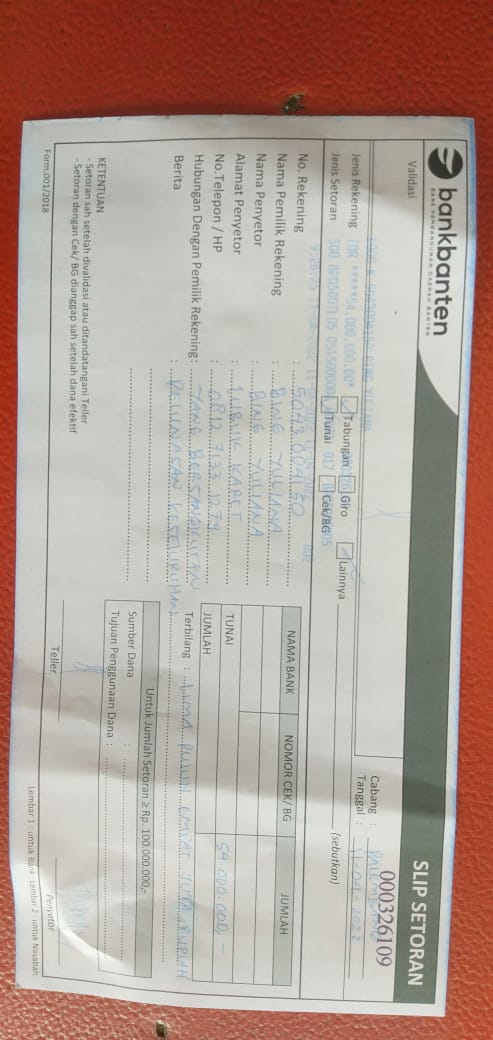 bankbanten
BANK PEMBANGUNAN DAERAH BANTEN
SLIP SETORAN
000326109
Validasi
Cabang : PALEMBANG
Tanggal : 11-04-2022
IDR *****54,000,000.00*
Jenis Rekening Tabungan Giro Lainnya
(sebutkan)
Jenis Setoran Tunai Cek/BG
No. Rekening :
Nama Pemilik Rekening : BING YULIANA
Nama Penyetor : BING YULIANA
Alamat Penyetor : LUBUK KARET
No.Telepon / HP : 0812 7133 1279
Hubungan Dengan Pemilik Rekening: YANG BERSANGKUTAN
Berita : PELUNASAN KESELURUHAN
NAMA BANK NOMOR CEK/ BG JUMLAH
TUNAI 54 000 000,-
JUMLAH
Terbilang : LIMA PULUH EMPAT JUTA RUPIAH
Untuk Jumlah Setoran ≥ Rp. 100.000.000,-
Sumber Dana :
Tujuan Penggunaan Dana :
KETENTUAN
- Setoran sah setelah divalidasi atau ditandatangani Teller
- Setoran dengan Cek/ BG dianggap sah setelah dana efektif
Teller
Penyetor
Form.001/2018
Lembar 1 : untuk Bank, Lembar 2 : untuk Nasabah